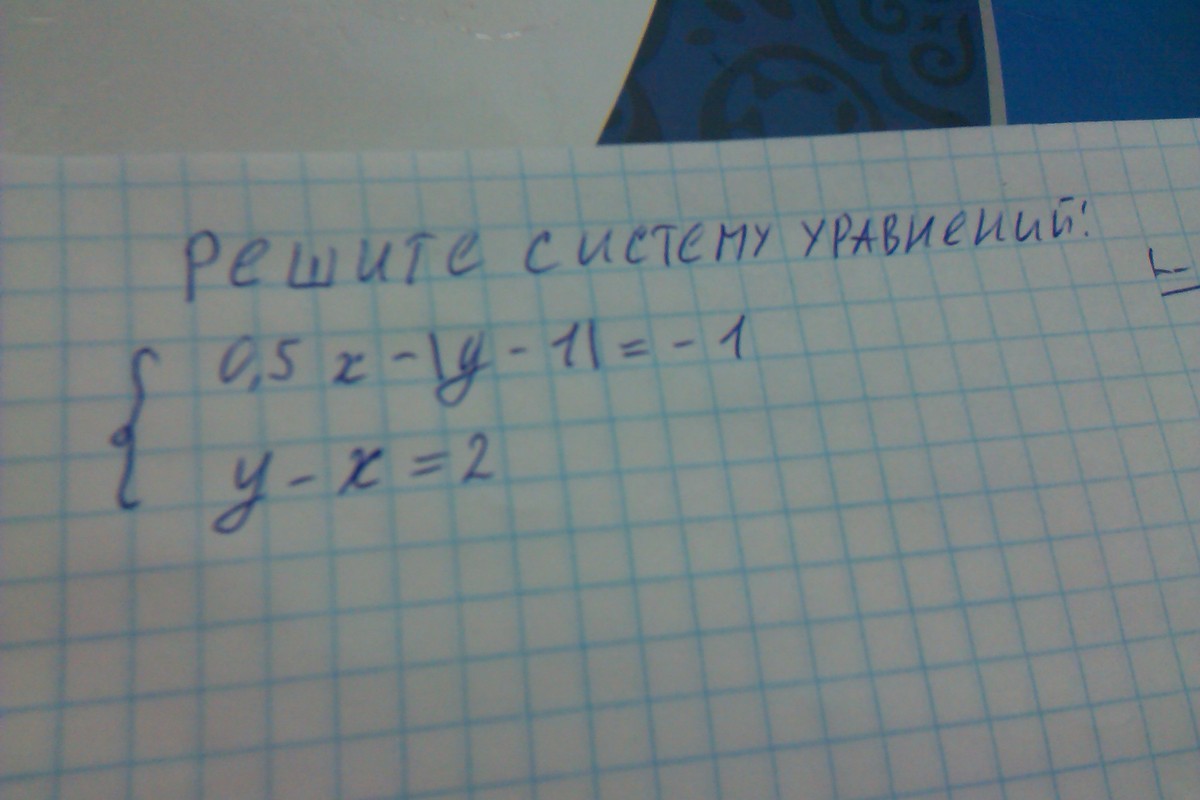 Решите систему уравнений:
0,5 x - |y - 1| = - 1
y - x = 2